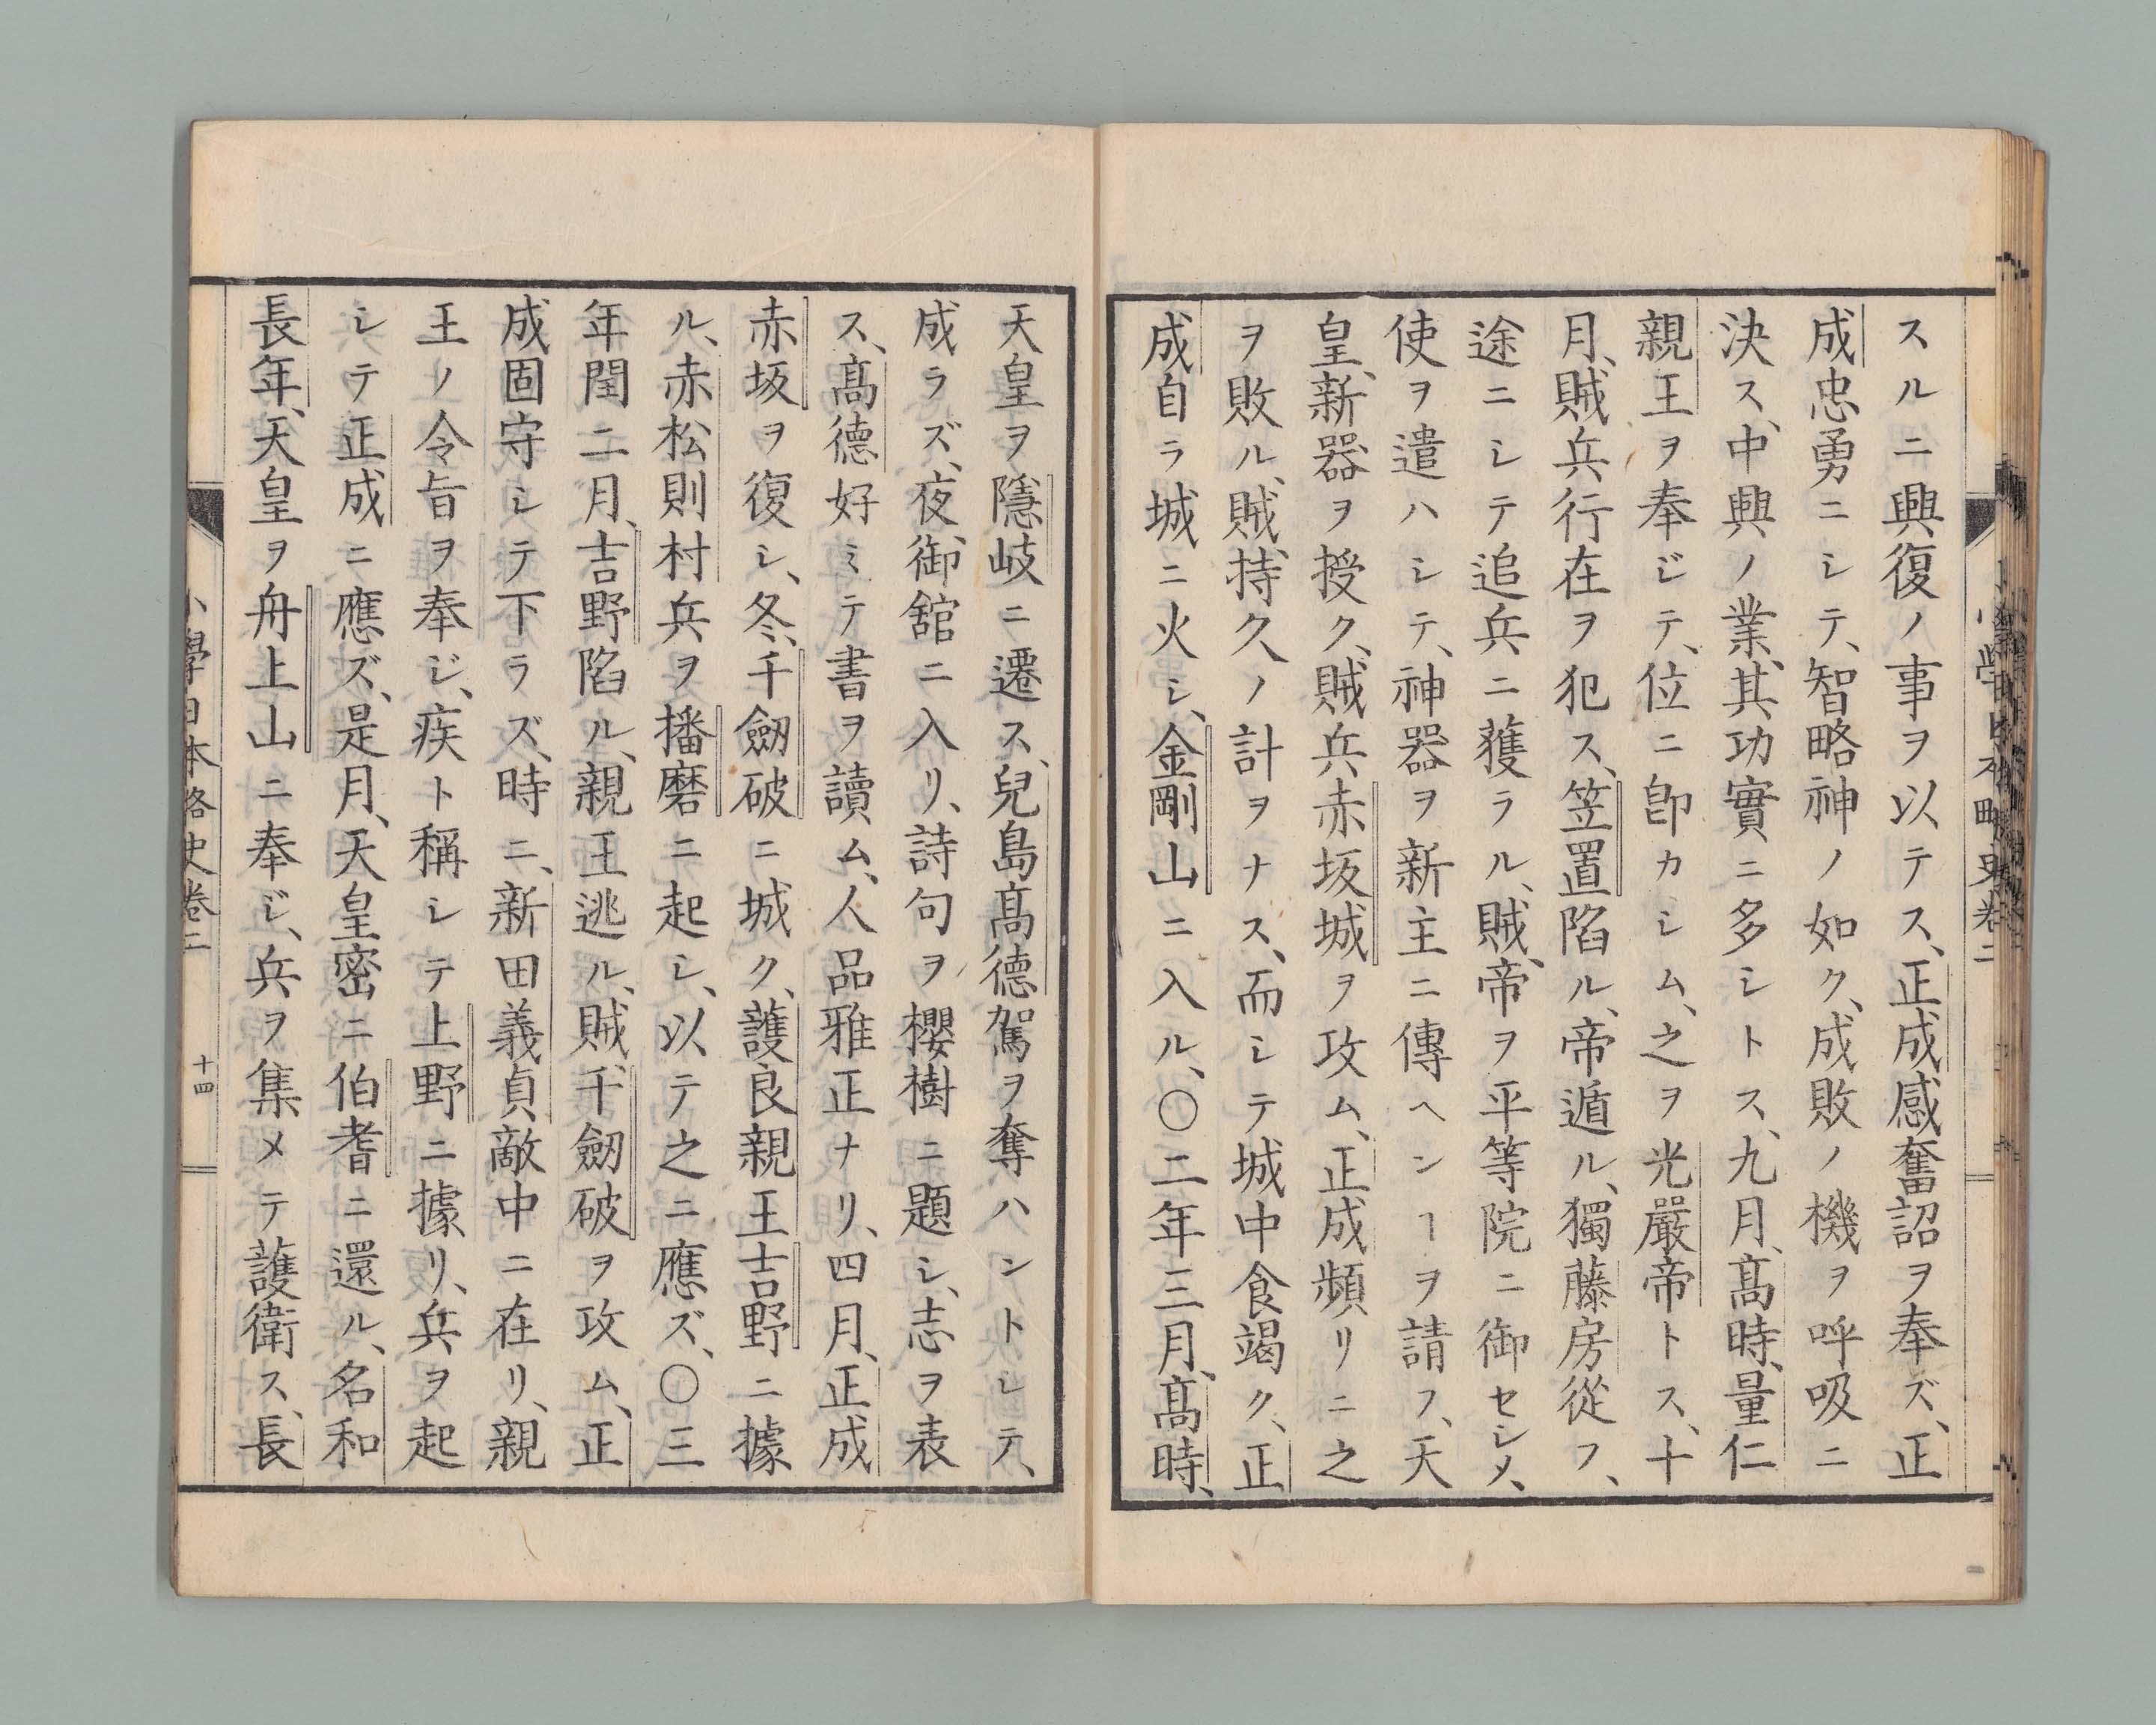 スルニ興復ノ事ヲ以テス、正成感奮詔ヲ奉ズ、正
成忠勇ニシテ、智略神ノ如ク、成敗ノ機ヲ呼吸ニ
決ス、中興ノ業、其功實ニ多シトス、九月、髙時、量仁
親王ヲ奉ジテ、位ニ卽カシム、之ヲ光嚴帝トス、十
月、賊兵行在ヲ犯ス、笠置陷ル、帝遁ル、獨藤房從フ、
途ニシテ追兵ニ獲ラル、賊、帝ヲ平等院ニ御セシメ、
使ヲ遣ハシテ、神器ヲ新主ニ傳ヘンヿヲ請フ、天
皇、新器ヲ授ク、賊兵赤坂城ヲ攻ム、正成頻リニ之
ヲ敗ル、賊、持久ノ計ヲナス、而シテ城中食竭ク、正
成自ラ城ニ火シ、金剛山ニ入ル、〇二年三月、髙時、
天皇ヲ隱岐ニ遷ス、兒島髙德駕ヲ奪ハントシテ、
成ラズ、夜、御舘ニ入リ、詩句ヲ櫻樹ニ題シ、志ヲ表
ス、髙德好ミテ書ヲ讀ム、人品雅正ナリ、四月、正成
赤坂ヲ復シ、冬、千劒破ニ城ク、護良親王吉野ニ據
ル、赤松則村兵ヲ播磨ニ起シ、以テ之ニ應ズ、〇三
年閏二月、吉野陷ル、親王逃ル、賊、千劒破ヲ攻ム、正
成固守シテ下ラズ、時ニ、新田義貞敵中ニ在リ、親
王ノ令旨ヲ奉ジ、疾ト稱シテ上野ニ據リ、兵ヲ起
シテ正成ニ應ズ、是月、天皇密ニ伯耆ニ還ル、名和
長年、天皇ヲ舟上山ニ奉ジ、兵ヲ集メテ護衛ス、長
小學日本略史卷二
十四